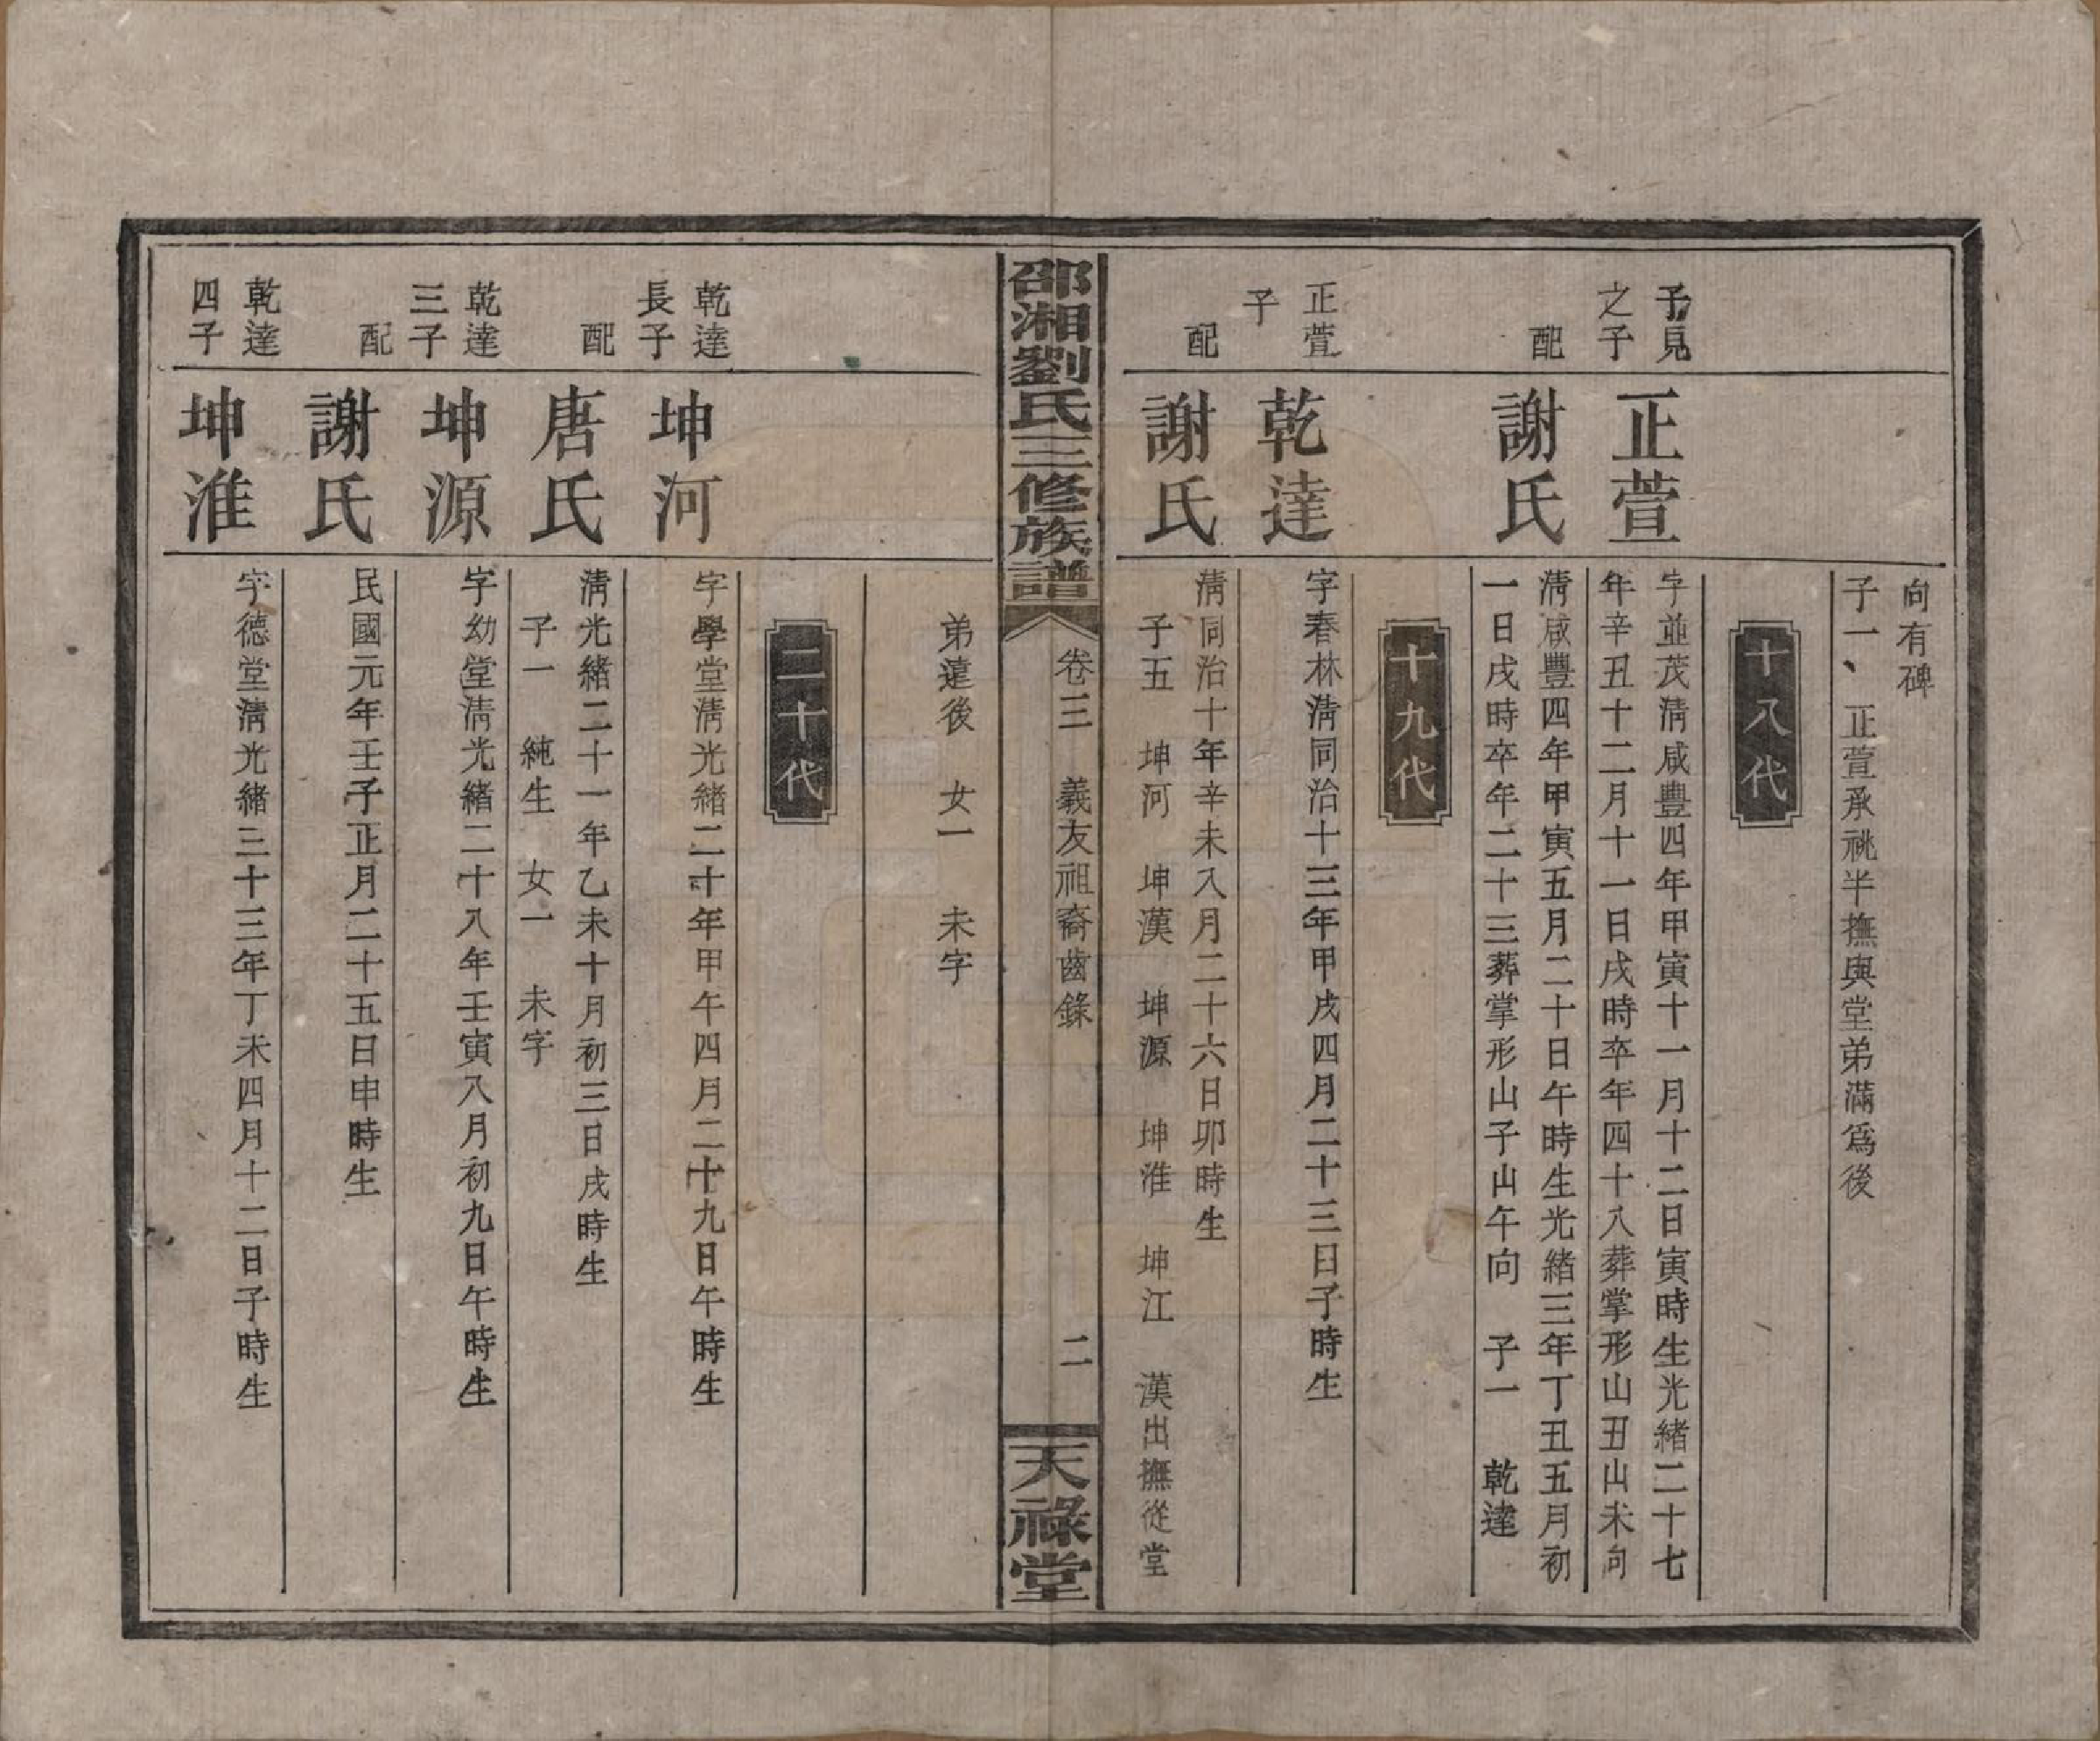 向有碑
子一、正萱承祧半撫與堂弟滿爲後
十八代
予見
之子
正萱
字並茂淸咸豐四年甲寅十一月十二日寅時生光緒二十七
年辛丑十二月十一日戌時卒年四十八葬掌形山丑山未向
配
謝氏
淸咸豐四年甲寅五月二十日午時生光緒三年丁丑五月初
一日戌時卒年二十三葬掌形山子山午向 子一 乾達
十九代
正萱
子
乾達
字春林淸同治十三年甲戌四月二十三日子時生
配
謝氏
淸同治十年辛未八月二十六日卯時生
子五 坤河 坤漢 坤源 坤淮 坤江 漢出撫從堂
邵湘劉氏三修族譜
卷三 義友祖裔齒錄
二
天祿堂
弟遠後 女一 未字
二十代
乾達
長子
坤河
字學堂淸光緒二十年甲午四月二十九日午時生
配
唐氏
淸光緒二十一年乙未十月初三日戌時生
子一 純生 女一 未字
乾達
三子
坤源
字幼堂淸光緒二十八年壬寅八月初九日午時生
配
謝氏
民國元年壬子正月二十五日申時生
乾達
四子
坤淮
字德堂淸光緒三十三年丁未四月十二日子時生